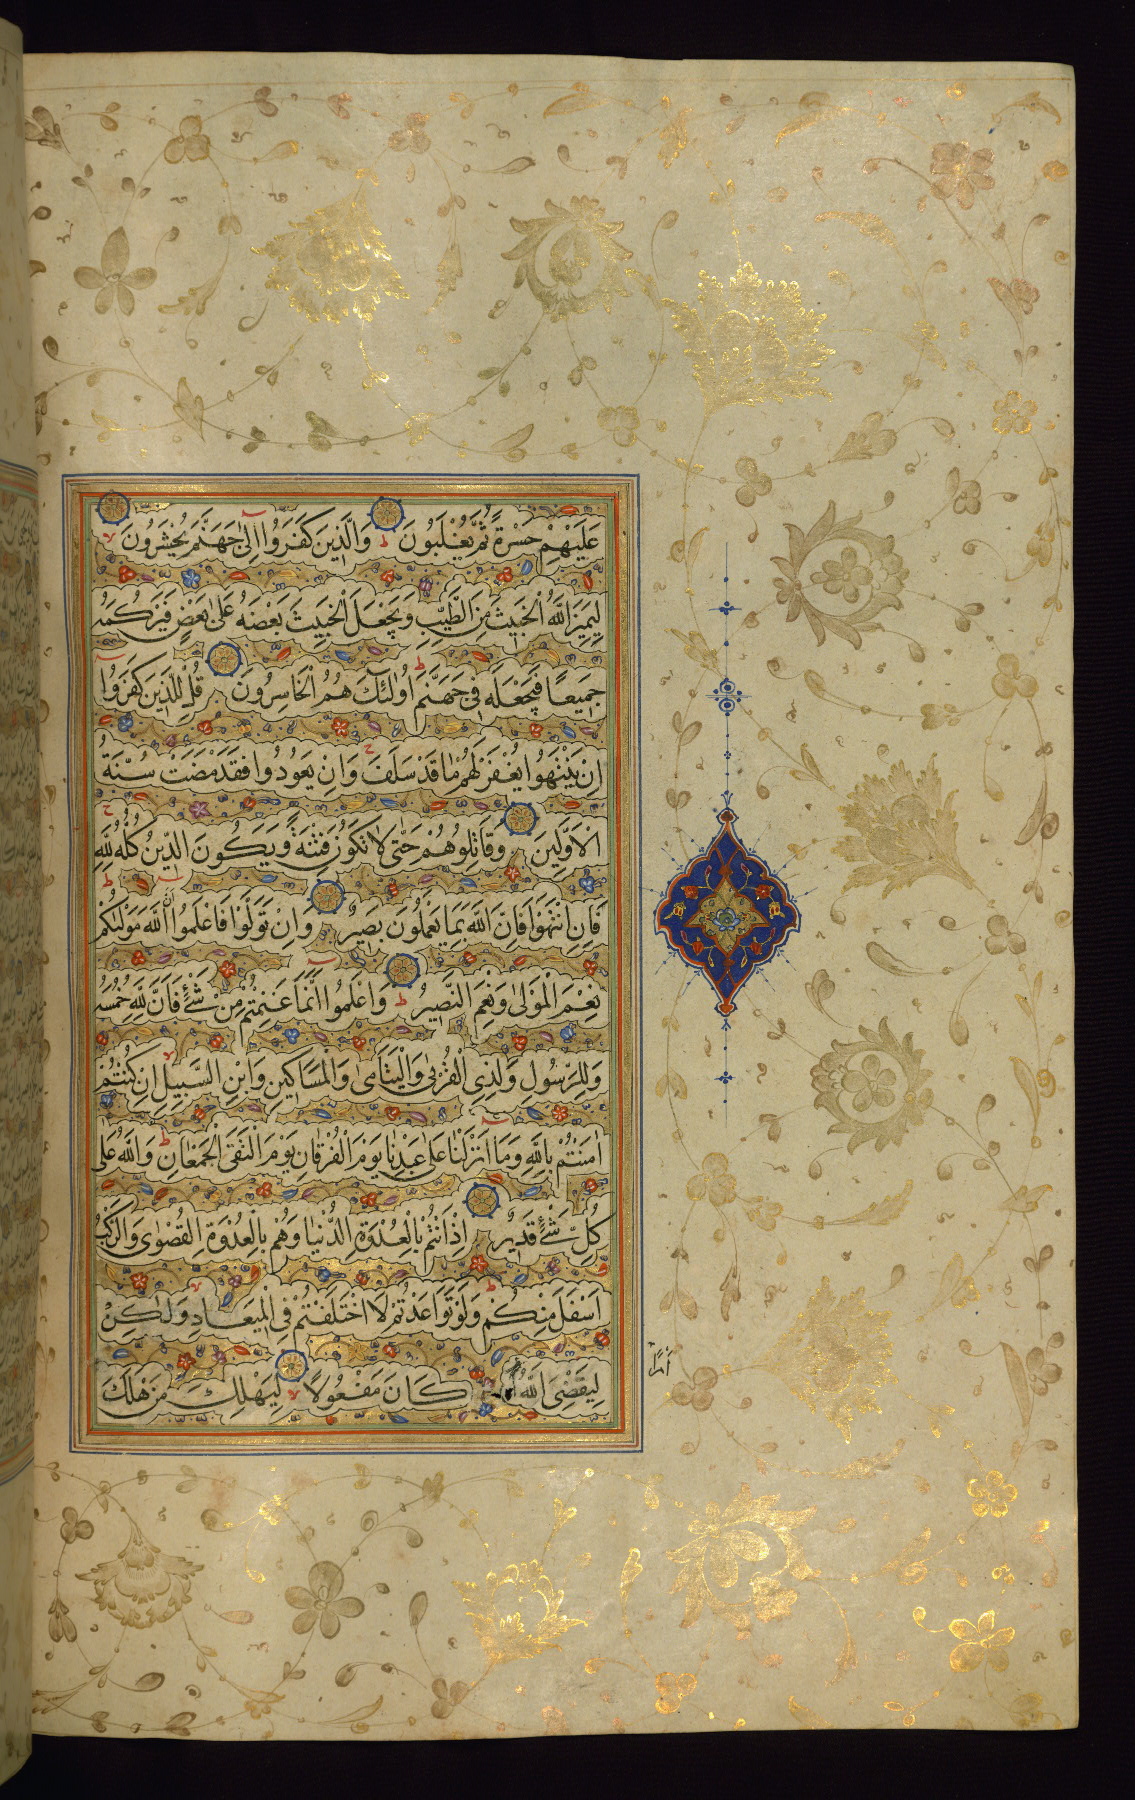 عَلَيْهِمْ حَسْرَةً ثُمَّ يُغْلَبُونَ ط وَالَّذِينَ كَفَرُوا اِلٰى جَهَنَّمَ يُحْشَرُونَ
لِيَمِيزَ اللّٰهُ الْخَبِيثَ مِنَ الطَّيِّبِ وَيَجْعَلَ الْخَبِيثَ بَعْضَهُ عَلٰى بَعْضٍ فَيَرْكُمَهُ
جَمِيعًا فَيَجْعَلَهُ فِي جَهَنَّمَ ط اُولٰئِكَ هُمُ الْخَاسِرُونَ قُلْ لِلَّذِينَ كَفَرُوا
اِنْ يَنْتَهُوا يُغْفَرْ لَهُمْ مَا قَدْ سَلَفَ ج وَاِنْ يَعُودُوا فَقَدْ مَضَتْ سُنَّةُ
الْاَوَّلِينَ وَقَاتِلُوهُمْ حَتّٰى لَا تَكُونَ فِتْنَةٌ وَيَكُونَ الدِّينُ كُلُّهُ لِلّٰهِ ج
فَاِنِ انْتَهَوْا فَاِنَّ اللّٰهَ بِمَا يَعْمَلُونَ بَصِيرٌ وَاِنْ تَوَلَّوْا فَاعْلَمُوا اَنَّ اللّٰهَ مَوْلٰىكُمْ ط
نِعْمَ الْمَوْلٰى وَنِعْمَ النَّصِيرُ ط وَاعْلَمُوا اَنَّمَا غَنِمْتُمْ مِنْ شَيْءٍ فَاَنَّ لِلّٰهِ خُمُسَهُ
وَلِلرَّسُولِ وَلِذِي الْقُرْبٰى وَالْيَتَامٰى وَالْمَسَاكِينِ وَابْنِ السَّبِيلِ لا اِنْ كُنْتُمْ
اٰمَنْتُمْ بِاللّٰهِ وَمَا اَنْزَلْنَا عَلٰى عَبْدِنَا يَوْمَ الْفُرْقَانِ يَوْمَ الْتَقَى الْجَمْعَانِ ط وَاللّٰهُ عَلٰى
كُلِّ شَيْءٍ قَدِيرٌ اِذْ اَنْتُمْ بِالْعُدْوَةِ الدُّنْيَا وَهُمْ بِالْعُدْوَةِ الْقُصْوٰى وَالرَّكْبُ
اَسْفَلَ مِنْكُمْ ط وَلَوْ تَوَاعَدْتُمْ لَاخْتَلَفْتُمْ فِي الْمِيعَادِ لا وَلٰكِنْ
لِيَقْضِيَ اللّٰهُ كَانَ مَفْعُولًا لا لِيَهْلِكَ مَنْ هَلَكَ
اَمْرًا